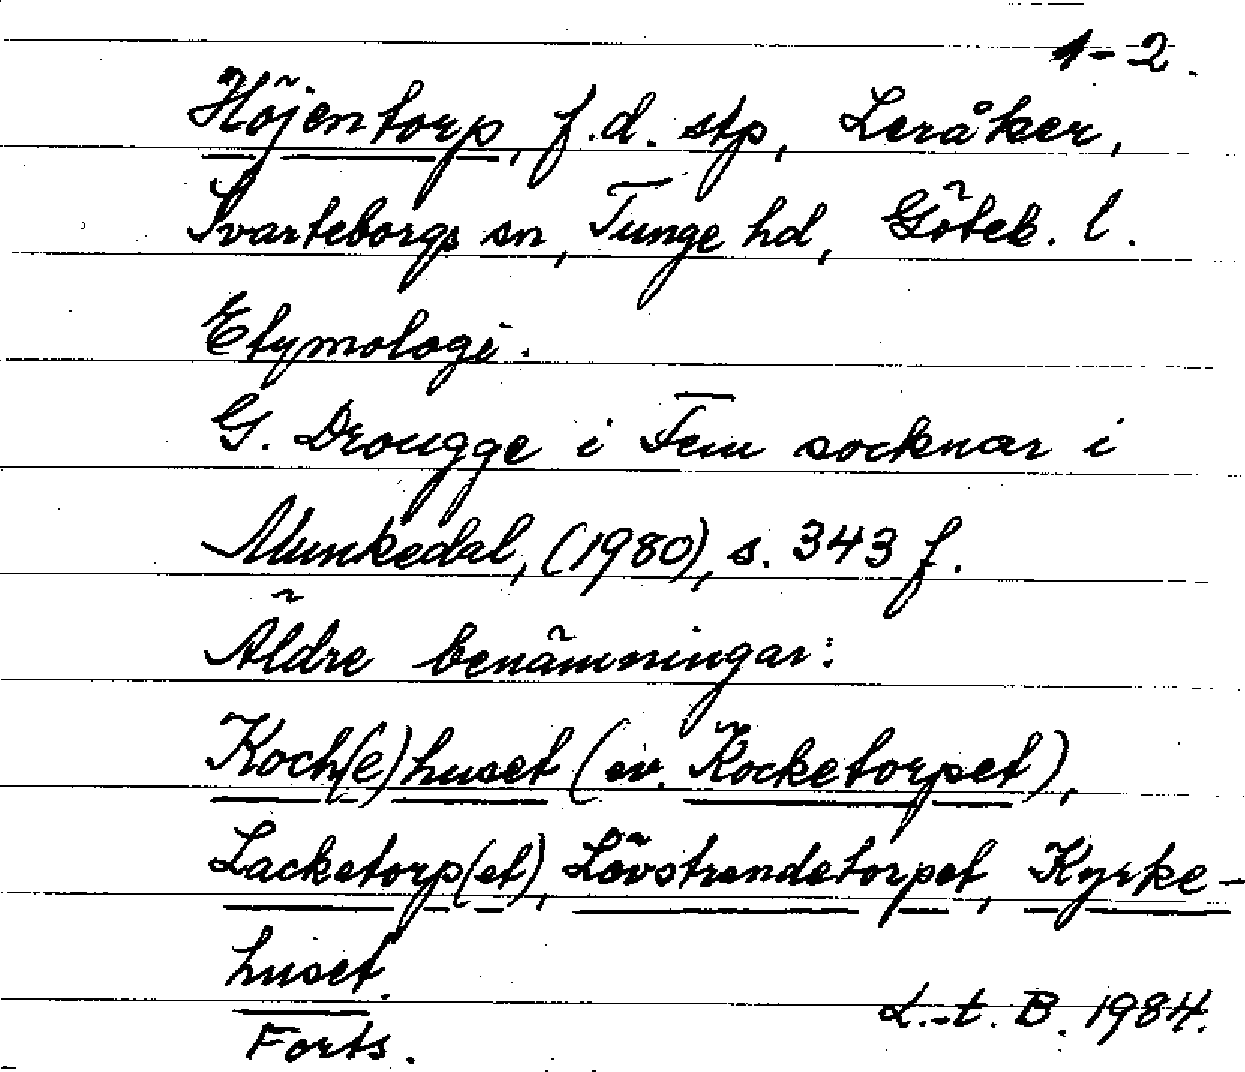 1-2.
Höjentorp, f.d. stp, Leråker,
Svarteborgs sn, Tunge hd, Göteb. l.
Etymologi.
G. Drougge i Fem socknar i
Munkedal, (1980), s. 343 f.
Äldre benämningar:
Koch(e)huset (ev. Kocketorpet),
Lacketorp(et), Lövstrandetorpet, Kyrke-
huset.
L.t. B. 1984.
Forts.